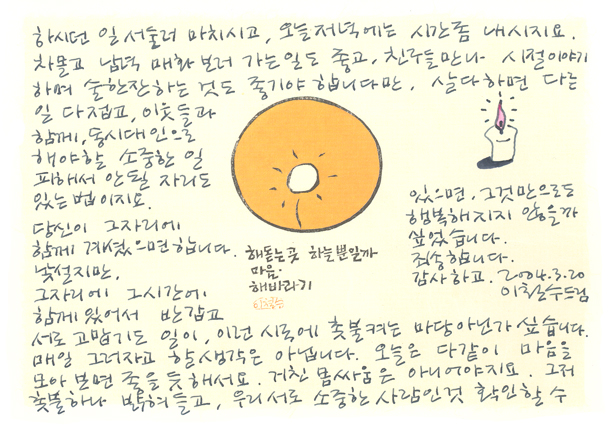 하시던 일 서둘러 마치시고, 오늘저녁에는 시간좀 내시지요.
차몰고 남녘 매화 보러 가는일도 좋고, 친구들만나 시절이야기
하며 술한잔하는 것도 좋기야 합니다만, 살다하면 다른
일 다접고, 이웃들과
함께, 동시대인으로
해야할 소중한 일
피해서 안될 자리도
있는 법이지요.
당신이 그자리에
함께 계셨으면합니다.
낯설지만,
그자리에 그시간에
함께 있어서 반갑고
서로 고맙기도 일이, 이런 시국에 촛불켜는 마당아닌가 싶습니다.
매일 그러자고 할생각은 아닙니다. 오늘은 다같이 마음을
모아 보면 좋을 듯해서요. 거친 몸싸움은 아니어야지요. 그저
촛불하나 밝혀들고, 우리서로 소중한 사람인것 확인할 수
있으면, 그것만으로도
행복해지지 않을까
싶었습니다.
죄송합니다.
감사하고. 2004.3.20
이철수드림
해돋는곳 하늘뿐일까
마음.
해바라기